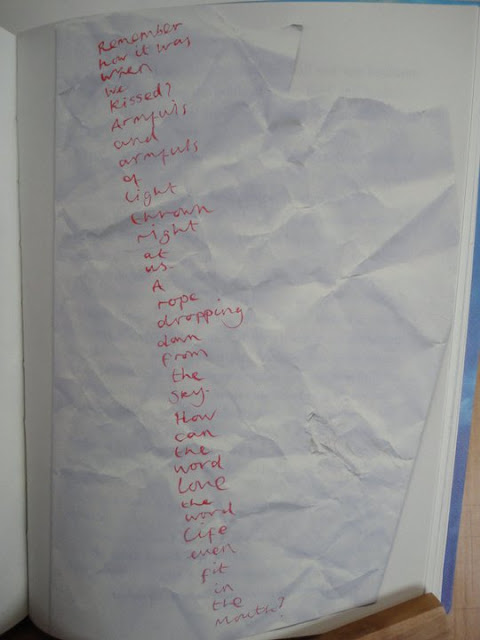 Remember
how it was
when
we
kissed?
Armfuls
and
armfuls
of
light
thrown
right
at
us.
A
rope
dropping
down
from
the
sky.
How
can
the
word
love
the
word
life
even
fit
in
the
mouth?